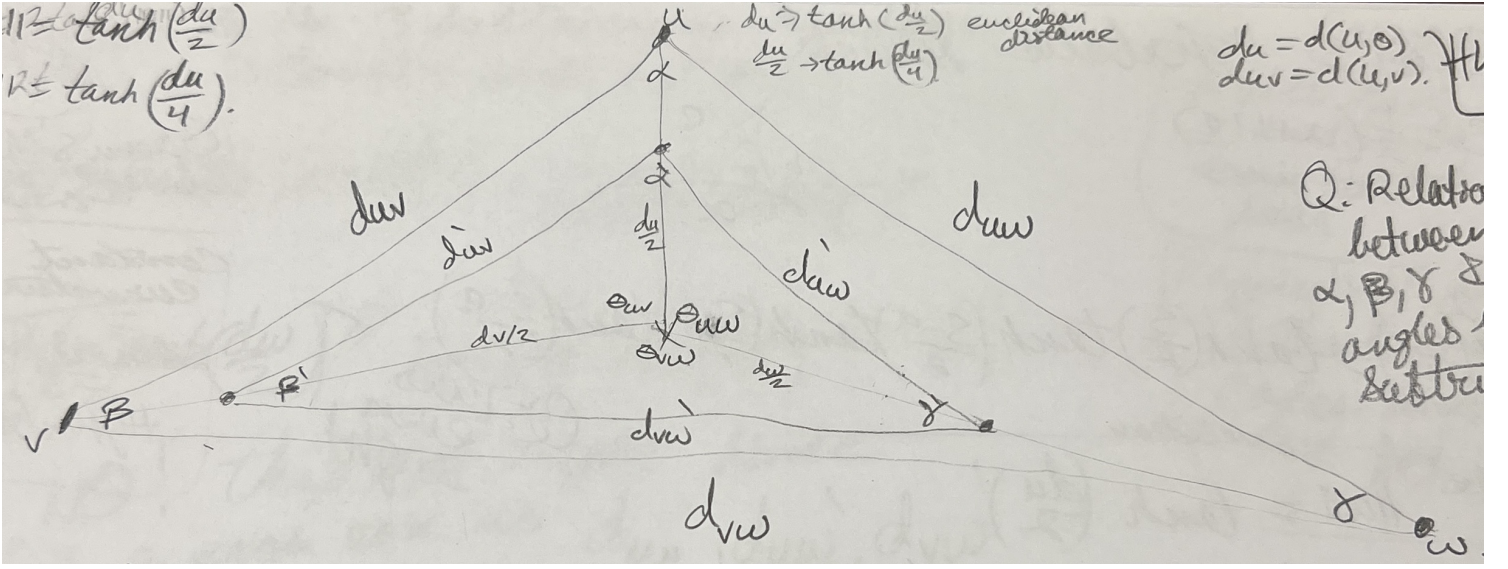 = tanh(du/2)
= tanh(du/4).
u
du → tanh(du/2) euclidean distance
du/2 → tanh(du/4)
du = d(u,0)
duv = d(u,v).
α
α'
Q: Relatio
between
α, β, γ &
angles
Subtri
duv
du'v
du/2
du'w
duw
θuv
θuw
θvw
dv/2
dw/2
β
β'
γ'
dv'w
v
dvw
γ
w